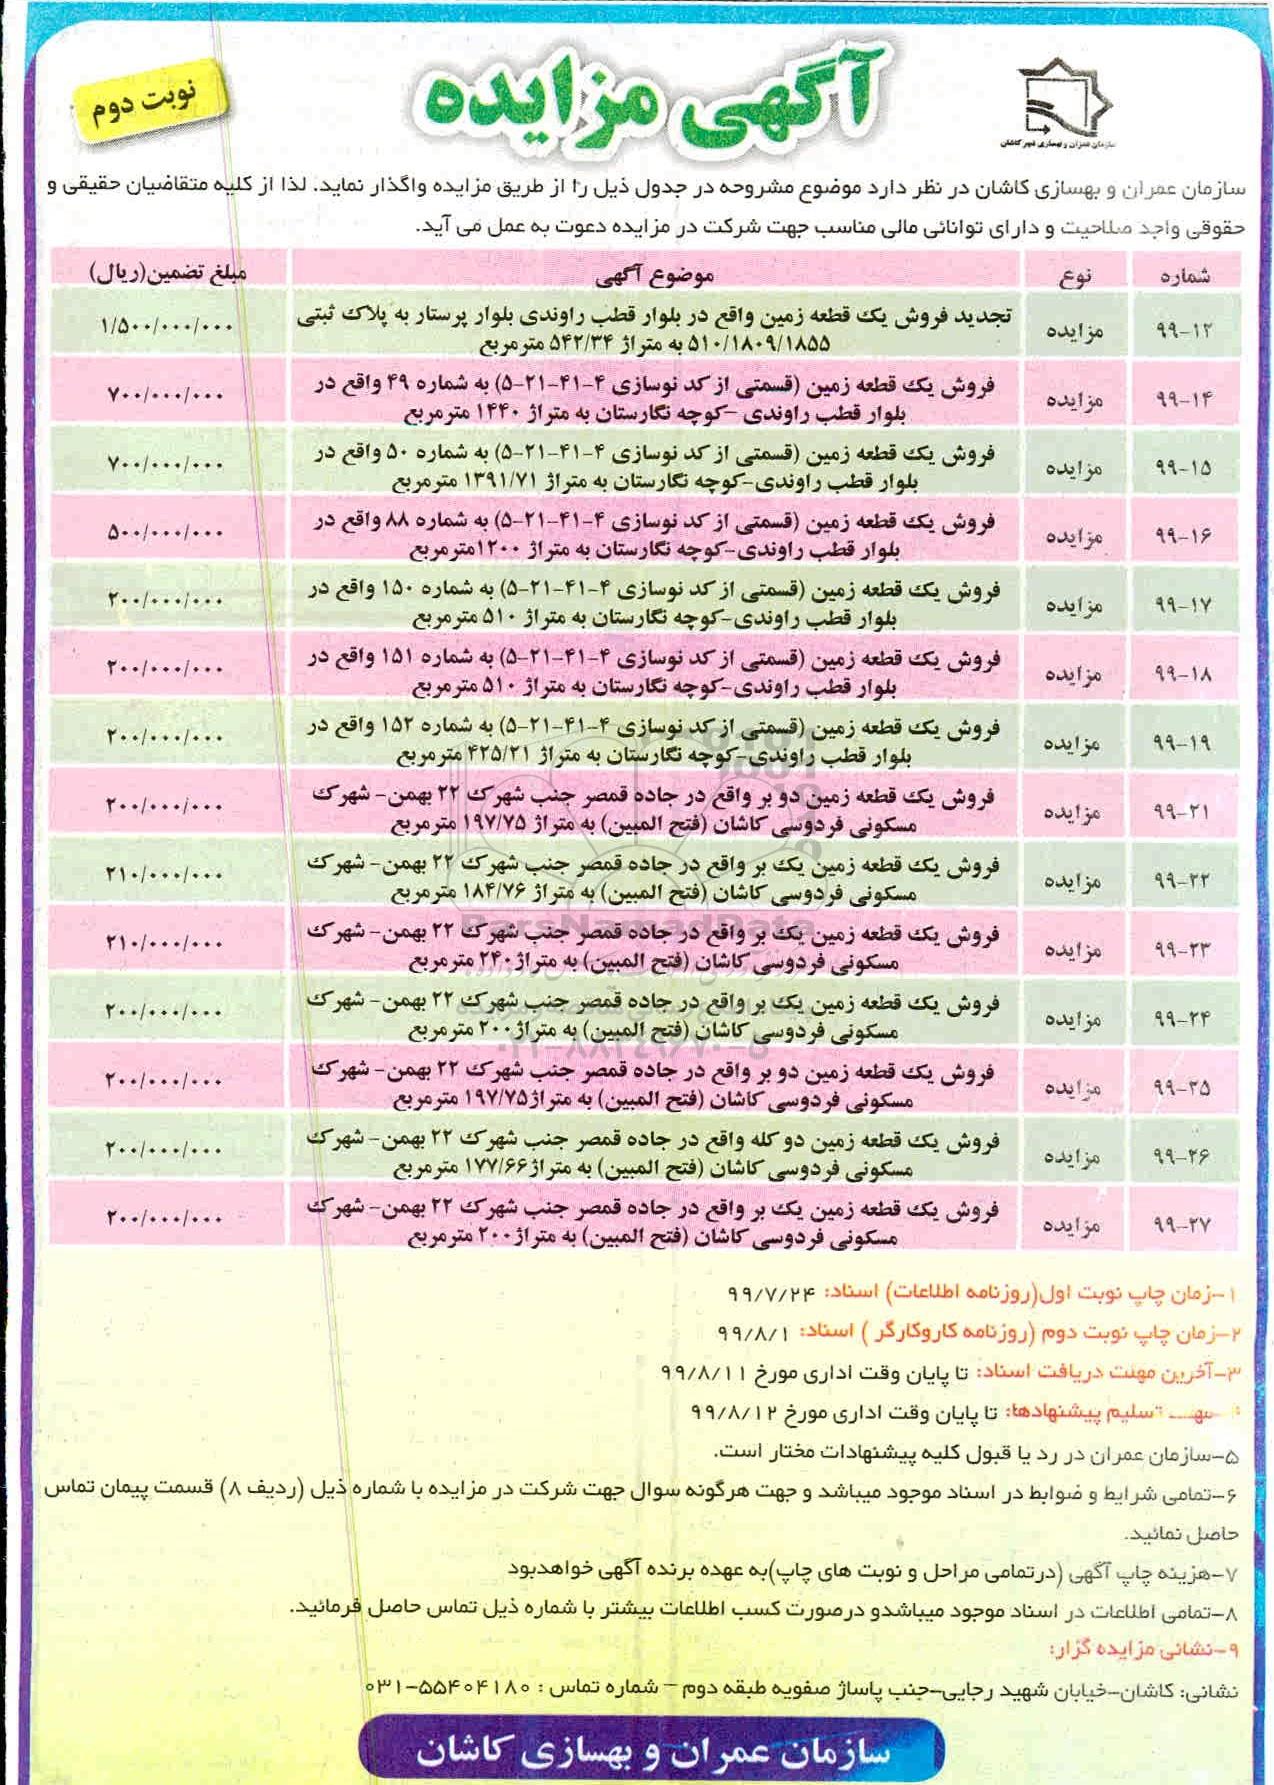 سازمان عمران و بهسازی شهر کاشان
آگهی مزایده
نوبت دوم
سازمان عمران و بهسازی کاشان در نظر دارد موضوع مشروحه در جدول ذیل را از طریق مزایده واگذار نماید. لذا از کلیه متقاضیان حقیقی و
حقوقی واجد صلاحیت و دارای توانائی مالی مناسب جهت شرکت در مزایده دعوت به عمل می آید.
شماره نوع موضوع آگهی مبلغ تضمین(ریال)
۹۹-۱۲ مزایده تجدید فروش یک قطعه زمین واقع در بلوار قطب راوندی بلوار پرستار به پلاک ثبتی ۱/۵۰۰/۰۰۰/۰۰۰
۵۱۰/۱۸۰۹/۱۸۵۵ به متراژ ۵۴۲/۳۴ مترمربع
۹۹-۱۴ مزایده فروش یک قطعه زمین (قسمتی از کد نوسازی ۴-۴۱-۲۱-۵) به شماره ۴۹ واقع در ۷۰۰/۰۰۰/۰۰۰
بلوار قطب راوندی -کوچه نگارستان به متراژ ۱۴۴۰ مترمربع
۹۹-۱۵ مزایده فروش یک قطعه زمین (قسمتی از کد نوسازی ۴-۴۱-۲۱-۵) به شماره ۵۰ واقع در ۷۰۰/۰۰۰/۰۰۰
بلوار قطب راوندی-کوچه نگارستان به متراژ ۱۳۹۱/۷۱ مترمربع
۹۹-۱۶ مزایده فروش یک قطعه زمین (قسمتی از کد نوسازی ۴-۴۱-۲۱-۵) به شماره ۸۸ واقع در ۵۰۰/۰۰۰/۰۰۰
بلوار قطب راوندی-کوچه نگارستان به متراژ ۱۲۰۰مترمربع
۹۹-۱۷ مزایده فروش یک قطعه زمین (قسمتی از کد نوسازی ۴-۴۱-۲۱-۵) به شماره ۱۵۰ واقع در ۲۰۰/۰۰۰/۰۰۰
بلوار قطب راوندی-کوچه نگارستان به متراژ ۵۱۰ مترمربع
۹۹-۱۸ مزایده فروش یک قطعه زمین (قسمتی از کد نوسازی ۴-۴۱-۲۱-۵) به شماره ۱۵۱ واقع در ۲۰۰/۰۰۰/۰۰۰
بلوار قطب راوندی-کوچه نگارستان به متراژ ۵۱۰ مترمربع
۹۹-۱۹ مزایده فروش یک قطعه زمین (قسمتی از کد نوسازی ۴-۴۱-۲۱-۵) به شماره ۱۵۲ واقع در ۲۰۰/۰۰۰/۰۰۰
بلوار قطب راوندی-کوچه نگارستان به متراژ ۴۲۵/۲۱ مترمربع
۹۹-۲۱ مزایده فروش یک قطعه زمین دو بر واقع در جاده قمصر جنب شهرک ۲۲ بهمن- شهرک ۲۰۰/۰۰۰/۰۰۰
مسکونی فردوسی کاشان (فتح المبین) به متراژ ۱۹۷/۷۵ مترمربع
۹۹-۲۲ مزایده فروش یک قطعه زمین یک بر واقع در جاده قمصر جنب شهرک ۲۲ بهمن- شهرک ۲۱۰/۰۰۰/۰۰۰
مسکونی فردوسی کاشان (فتح المبین) به متراژ ۱۸۴/۷۶ مترمربع
ParsNamadData
۹۹-۲۳ مزایده فروش یک قطعه زمین یک بر واقع در جاده قمصر جنب شهرک ۲۲ بهمن- شهرک ۲۱۰/۰۰۰/۰۰۰
مسکونی فردوسی کاشان (فتح المبین) به متراژ۲۴۰ مترمربع
۹۹-۲۴ مزایده فروش یک قطعه زمین یک بر واقع در جاده قمصر جنب شهرک ۲۲ بهمن- شهرک ۲۰۰/۰۰۰/۰۰۰
مسکونی فردوسی کاشان (فتح المبین) به متراژ۲۰۰ مترمربع
۰۲۱-۸۸۳۴۹۶۷۰-۵
۹۹-۲۵ مزایده فروش یک قطعه زمین دو بر واقع در جاده قمصر جنب شهرک ۲۲ بهمن- شهرک ۲۰۰/۰۰۰/۰۰۰
مسکونی فردوسی کاشان (فتح المبین) به متراژ۱۹۷/۷۵ مترمربع
۹۹-۲۶ مزایده فروش یک قطعه زمین دو کله واقع در جاده قمصر جنب شهرک ۲۲ بهمن- شهرک ۲۰۰/۰۰۰/۰۰۰
مسکونی فردوسی کاشان (فتح المبین) به متراژ۱۷۷/۶۶ مترمربع
۹۹-۲۷ مزایده فروش یک قطعه زمین یک بر واقع در جاده قمصر جنب شهرک ۲۲ بهمن- شهرک ۲۰۰/۰۰۰/۰۰۰
مسکونی فردوسی کاشان (فتح المبین) به متراژ۲۰۰ مترمربع
۱-زمان چاپ نوبت اول(روزنامه اطلاعات) اسناد: ۹۹/۷/۲۴
۲-زمان چاپ نوبت دوم (روزنامه کاروکارگر ) اسناد: ۹۹/۸/۱
۳-آخرین مهلت دریافت اسناد: تا پایان وقت اداری مورخ ۹۹/۸/۱۱
۴-مهلت تسلیم پیشنهادها: تا پایان وقت اداری مورخ ۹۹/۸/۱۲
۵-سازمان عمران در رد یا قبول کلیه پیشنهادات مختار است.
۶-تمامی شرایط و ضوابط در اسناد موجود میباشد و جهت هرگونه سوال جهت شرکت در مزایده با شماره ذیل (ردیف ۸) قسمت پیمان تماس
حاصل نمائید.
۷-هزینه چاپ آگهی (درتمامی مراحل و نوبت های چاپ)به عهده برنده آگهی خواهدبود
۸-تمامی اطلاعات در اسناد موجود میباشدو درصورت کسب اطلاعات بیشتر با شماره ذیل تماس حاصل فرمائید.
۹-نشانی مزایده گزار:
نشانی: کاشان-خیابان شهید رجایی-جنب پاساژ صفویه طبقه دوم - شماره تماس : ۵۵۴۰۴۱۸۰-۰۳۱
سازمان عمران و بهسازی کاشان